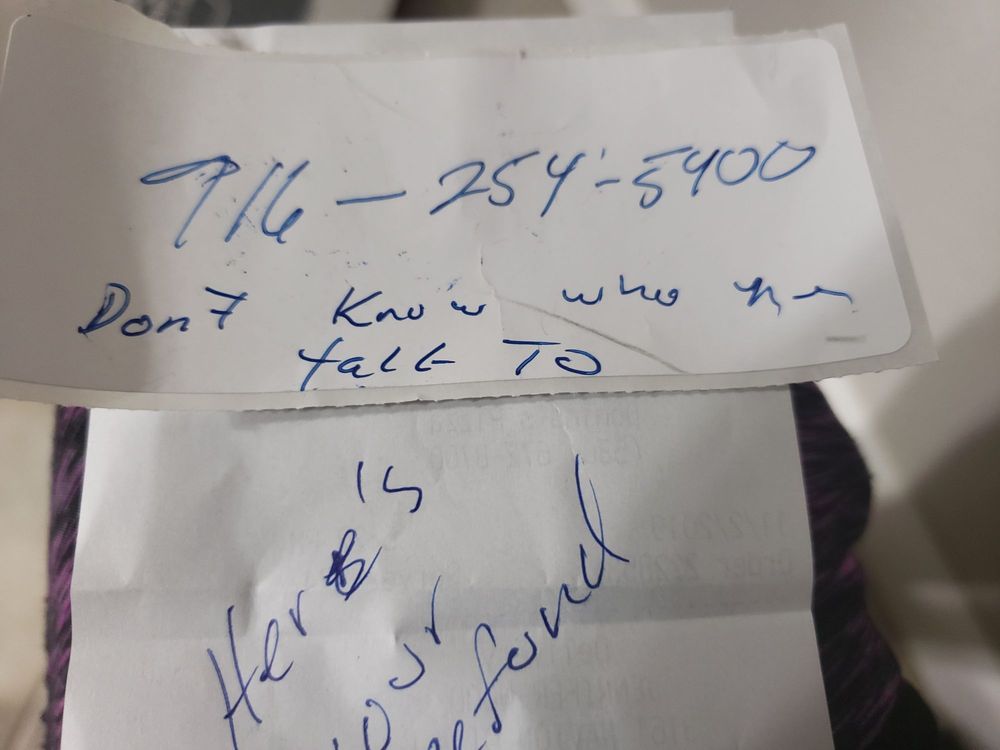 716-254-5400
Dont Know who
talk To
Here is
your
refund